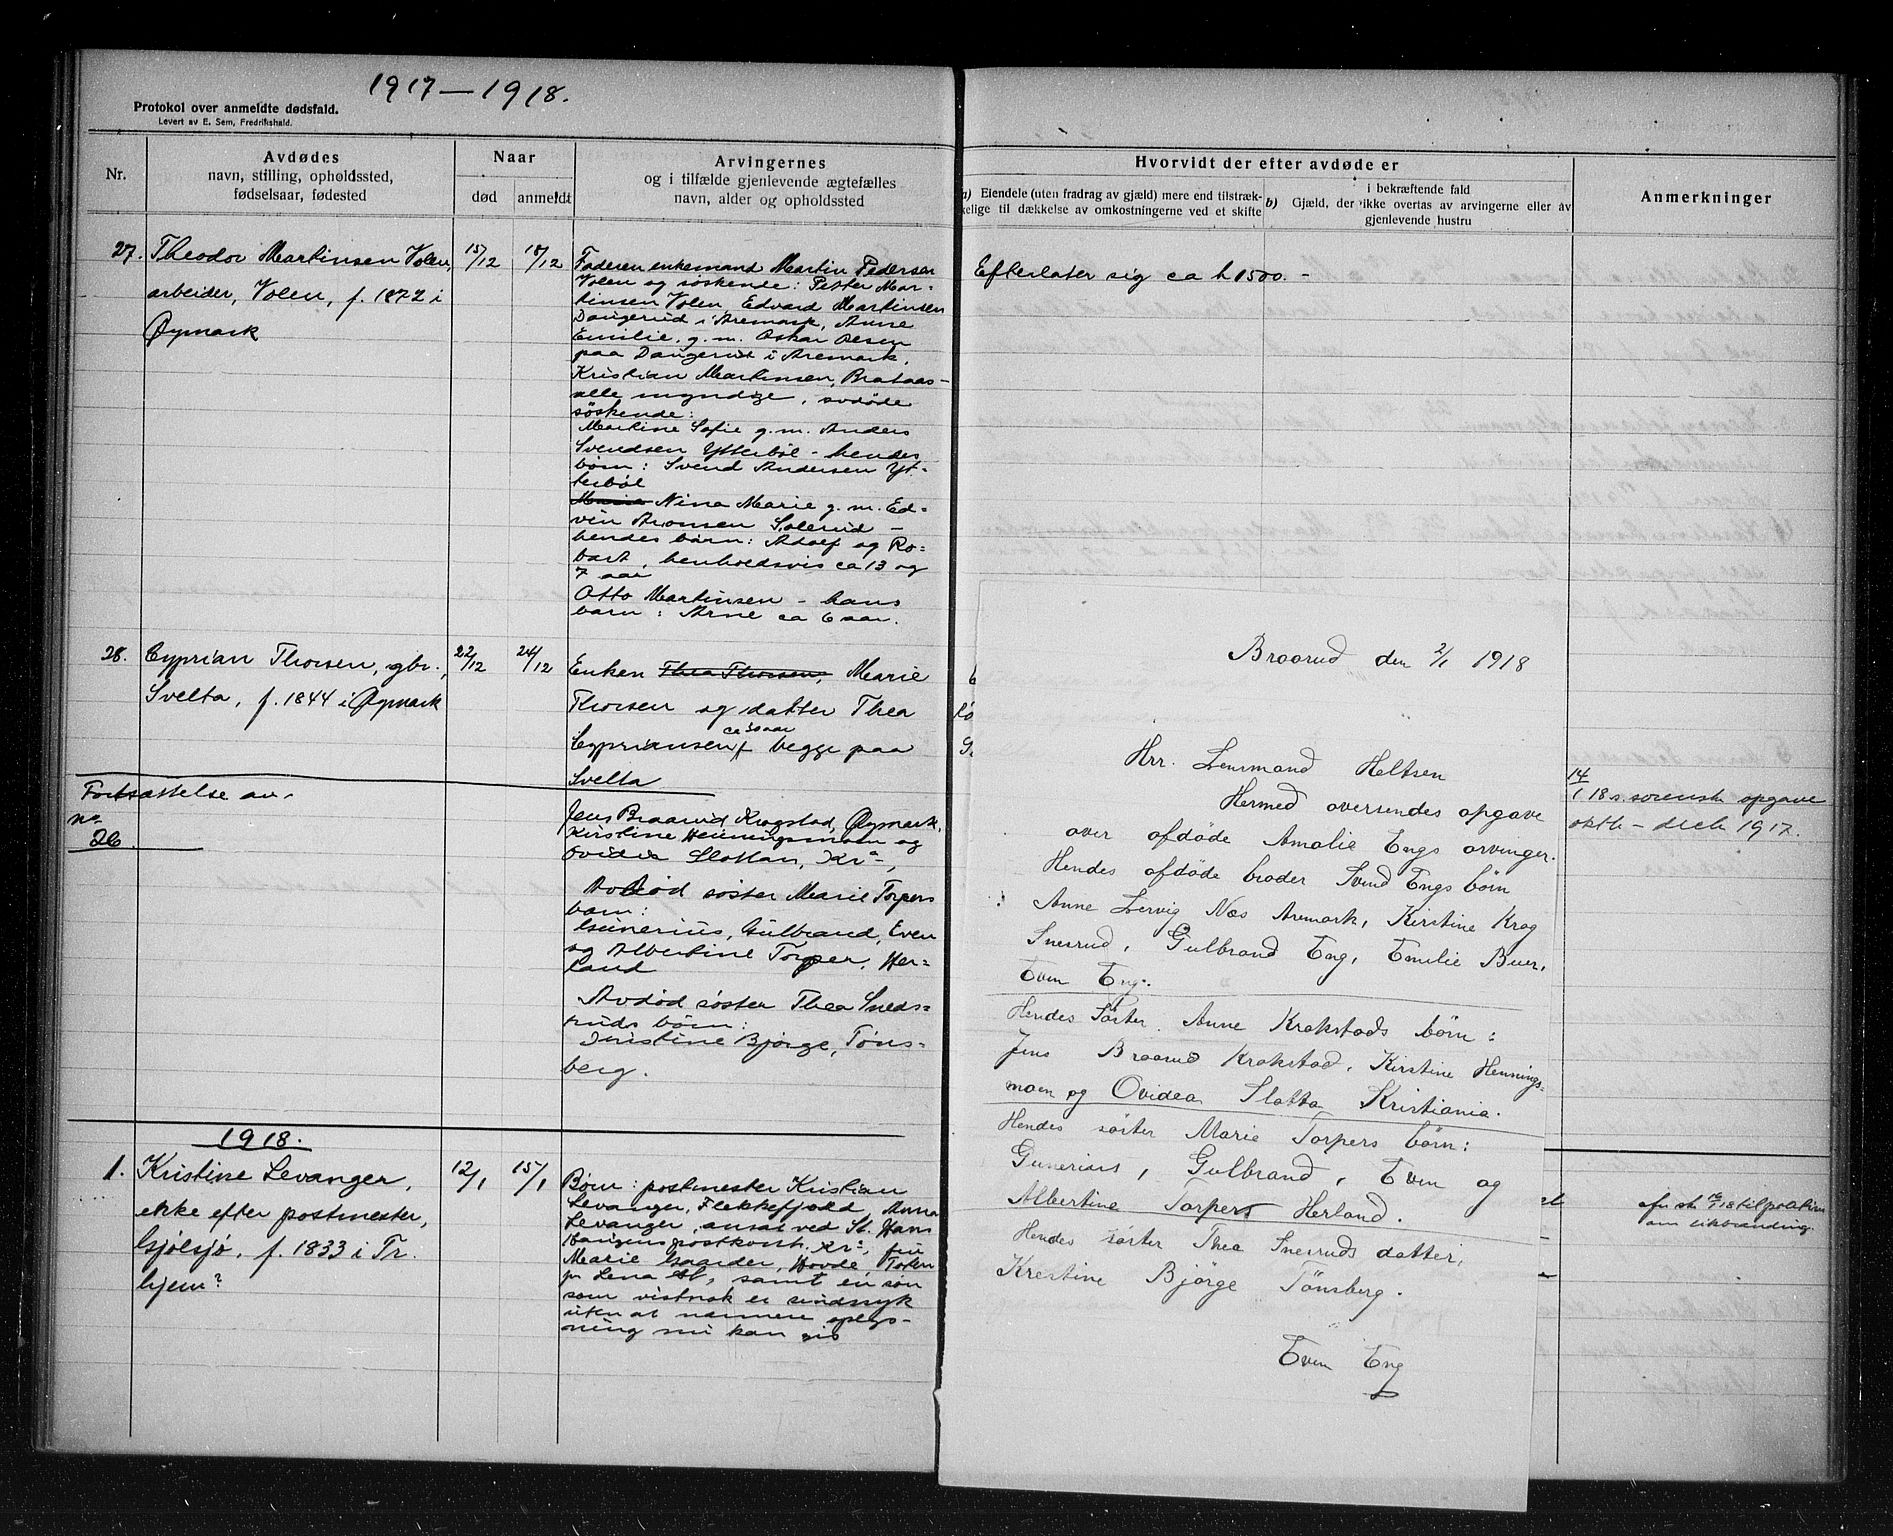 1917—1918.
Protokol over anmeldte dødsfald.
Levert av E. Sem, Fredrikshald.
Nr.
Avdødes
navn, stilling, opholdssted,
fødselsaar, fødested
Naar
død
anmeldt
Arvingernes
og i tilfælde gjenlevende ægtefælles
navn, alder og opholdssted
27.
Theodor Martinsen Volen,
arbeider, Volen, f. 1872 i
Øymark
15/12
18/12
Faderen enkemand Martin Pedersen
Volen og søskende: Petter Mar-
tinsen Volen, Edvard Martinsen
Daugerud i Aremark, Anne
Emilie, g. m. Oskar Olsen
paa Daugerud i Aremark,
Kristian Martinsen, Brataas –
alle myndige, avdøde
søskende:
Martine Sofie g. m. Anders
Svendsen Ytterbøl – hendes
børn: Svend Andersen Yt-
terbøl
Maria Nina Marie g. m. Ed-
vin Aronsen Solerud –
hendes børn: Adolf og Ro-
bart, henholdsvis ca 13 og
7 aar
Otto Martinsen – hans
barn: Arne ca 6 aar.
28.
Cyprian Thorsen, gbr.,
Svelta, f. 1844 i Øymark
22/12
24/12
Enken Thea Thorsen, Marie
Thorsen og datter Thea
Cypriansen, begge paa
Svelta
Fortsættelse av
no
26.
Jens Braarud Krogstad, Øymark,
Kristine Henningsmoen og
Ovidia Slottan, Kra,
Avdød søster Marie Torpers
barn:
Gunerius, Gulbrand, Even
og Albertine Torper, Her-
land
Avdød søster Thea Sneds-
ruds børn:
Kristine Bjørge, Tøns-
berg.
1918.
1.
Kristine Levanger,
enke efter postmester,
Gjølsjø, f. 1833 i Tr.
hjem?
12/1
15/1
Børn: postmester Kristian
Levanger, Flekkefjord, Anna
Levanger, ansat ved St. Hans
Haugens postkont. Kra, fru
Marie Gaarder, Hovde, Toten
pr Lena st, samt en søn
som vistnok er sindssyk
uten at nærmere oplys-
ning nu kan gis
Hvorvidt der efter avdøde er
a) Eiendele (uten fradrag av gjæld) mere end tilstræk-
kelige til dækkelse av omkostningerne ved et skifte
b)
i bekræftende fald
Gjæld, der ikke overtas av arvingerne eller av
gjenlevende hustru
Anmerkninger
Efterlater sig ca kr 1500.–
Braarud den 2/1 1918
Hrr. Lensmand Heltsen
Hermed oversendes opgave
over afdøde Amalie Engs arvinger.
Hendes afdøde broder Svend Engs børn
: Anne Lervig Næs Aremark, Kirstine Krog
Snesrud, Gulbrand Eng, Emilie Buer,
Even Eng.
Hendes Søster Anne Krakstads børn:
Jens Braarud Krakstad, Kirstine Hennings-
moen og Ovidea Slotta Kristiania.
Hendes søster Marie Torpers børn:
Gunerius, Gulbrand, Even og
Albertine Torpers Herland.
Hendes søster Thea Snesruds datter,
Krestine Bjørge Tønsberg.
Even Eng
14
/1 18 s. sorensk opgave
oktb – decb 1917.
om likbrænding.